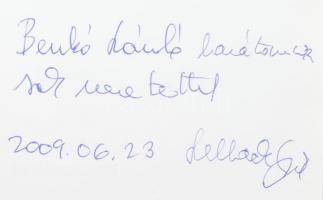 Benkó László barátomnak
sok szeretettel
2009.06.23